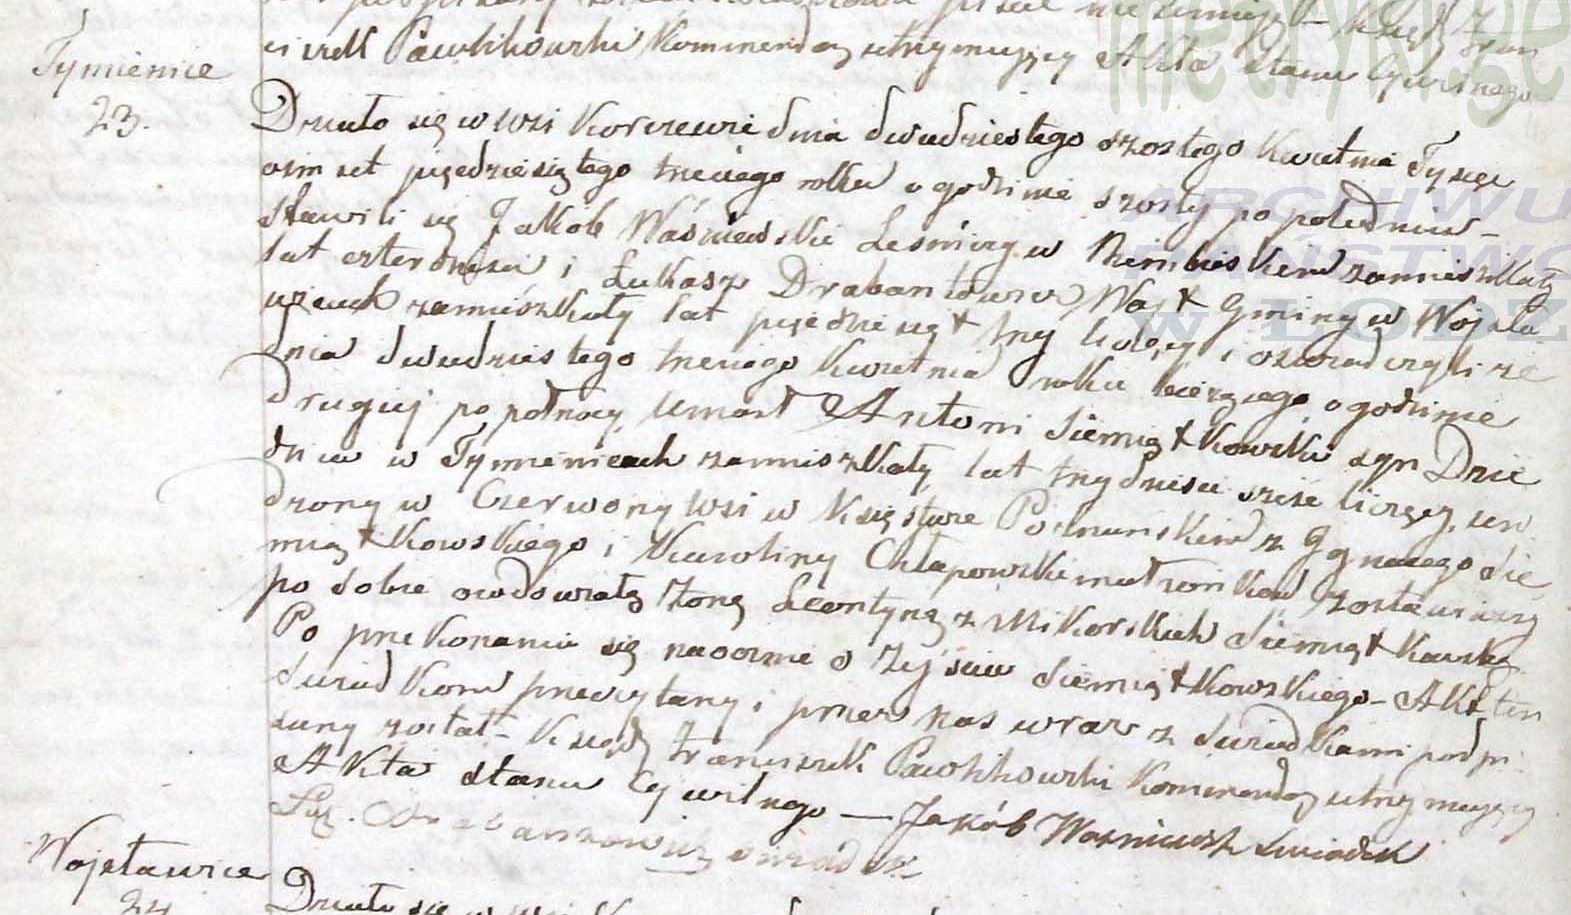 ciszek Pawlikowski Komendarz utrzymujący Akta Stanu Cywilnego
metryki.ge
Tymienice
23.
Działo się w wsi Korczewie dnia dwudziestego szóstego Kwietnia Tysiąc
osim set pięćdziesiątego trzeciego roku o godzinie szosty po południu –
Stawili się Jakób Waśniewski Leśniczy w zamieszkały
lat czterdzieści i Łukasz Drabantowicz Wójt Gminy w Wojsła
wicach zamiészkały lat pięćdziesiąt trzy liczący i oswiadczyli że
dnia dwudziestego trzeciego Kwietnia roku bieżącego o godzinie
drugiej po północy, umarł Antoni Siemiątkowski syn Dzie
dzica w Tymienicach zamieszkały lat trzydzieści sześć liczący, uro
dzony w Czerwony Wsi w Księstwie Poznańskiem z Ignacego Sie
miątkowskiego i Karoliny Chłapowski małżonków, zostawiwszy
po sobie owdowiałą żonę Leontynę z Mikorskich Siemiątkowską
Po przekonaniu się naocznie o zejściu Siemiątkowskiego – Akt ten
świadkom przeczytany i przez nas wraz z świadkami podpi
sany został – Ksiądz Franciszek Pawlikowski Komendarz utrzymujący
Akta stanu Cywilnego — Jakób Waśniewski świadek
Łuk. Drabantowicz świadek
Wojsławice
24
Działo się w wsi
ARCHIWU
PAŃSTWO
w ŁODZ